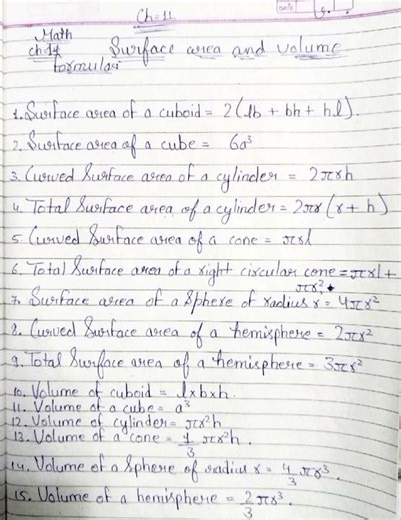 Ch-11
Math
Ch-14 Surface area and volume
formulas:
1. Surface area of a cuboid = 2(lb + bh + hl).
2. Surface area of a cube = 6a³
3. Curved Surface area of a cylinder = 2πrh
4. Total Surface area of a cylinder = 2πr(r + h)
5. Curved Surface area of a cone = πrl
6. Total Surface area of a right circular cone = πrl +
πr².
7. Surface area of a Sphere of radius r = 4πr²
8. Curved Surface area of a hemisphere = 2πr²
9. Total Surface area of a hemisphere = 3πr²
10. Volume of cuboid = l×b×h.
11. Volume of a cube = a³
12. Volume of cylinder = πr²h
13. Volume of a cone = 1/3 πr²h.
14. Volume of a Sphere of radius r = 4/3 πr³.
15. Volume of a hemisphere = 2/3 πr³.